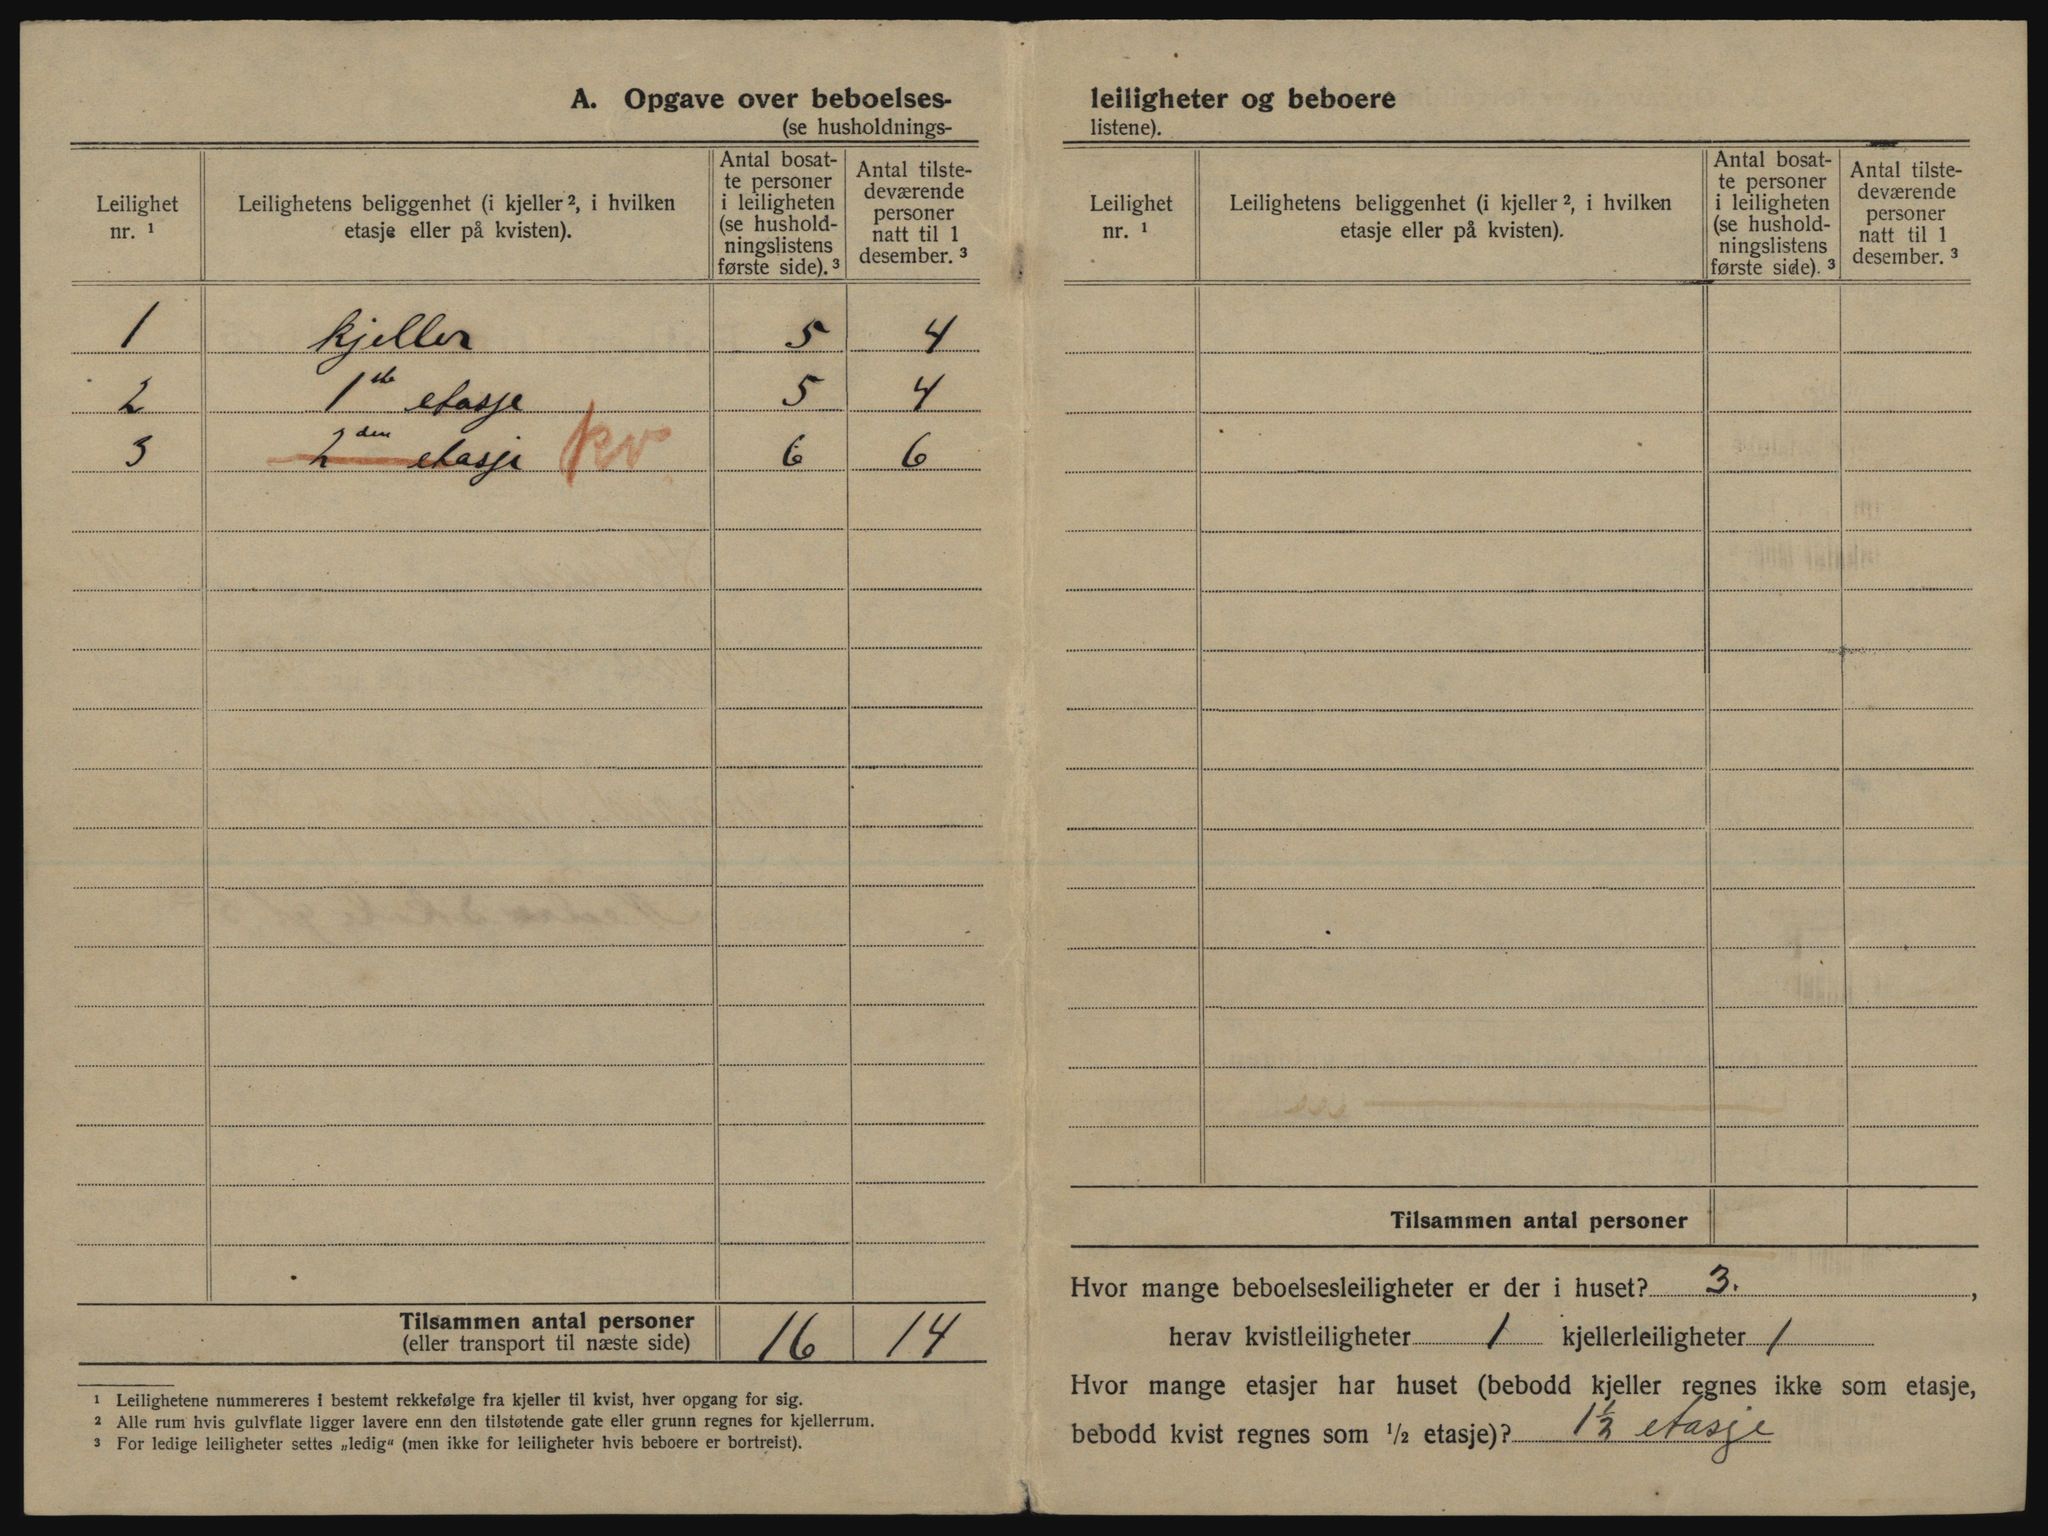 A. Opgave over beboelses-
(se husholdnings-
Leilighet nr. ¹
Leilighetens beliggenhet (i kjeller ², i hvilken etasje eller på kvisten).
Antal bosat-
te personer
i leiligheten
(se hushold-
ningslistens
første side). ³
Antal tilste-
deværende
personer
natt til 1
desember. ³
1 kjeller 5 4
2 1ste etasje 5 4
3 2den etasje kv 6 6
Tilsammen antal personer 16 14
(eller transport til næste side)
¹ Leilighetene nummereres i bestemt rekkefølge fra kjeller til kvist, hver opgang for sig.
² Alle rum hvis gulvflate ligger lavere enn den tilstøtende gate eller grunn regnes for kjellerrum.
³ For ledige leiligheter settes „ledig“ (men ikke for leiligheter hvis beboere er bortreist).
leiligheter og beboere
listene).
Leilighet nr. ¹
Leilighetens beliggenhet (i kjeller ², i hvilken etasje eller på kvisten).
Antal bosat-
te personer
i leiligheten
(se hushold-
ningslistens
første side). ³
Antal tilste-
deværende
personer
natt til 1
desember. ³
Tilsammen antal personer
Hvor mange beboelsesleiligheter er der i huset? 3.,
herav kvistleiligheter 1 kjellerleiligheter 1
Hvor mange etasjer har huset (bebodd kjeller regnes ikke som etasje,
bebodd kvist regnes som ½ etasje)? 1½ etasje